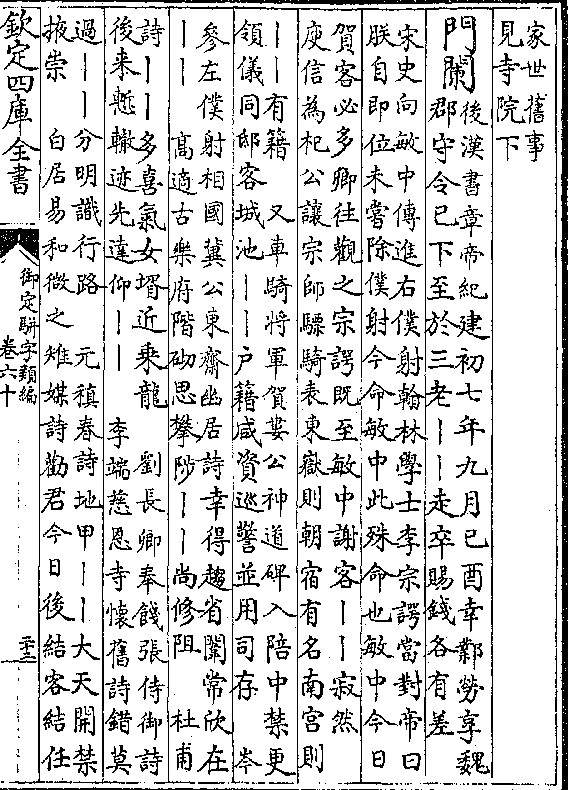 家世舊事
見寺院下
門闌
後漢書章帝紀建初七年九月己酉幸鄴勞享魏
郡守令已下至於三老丨丨走卒賜錢各有差
宋史向敏中傳進右僕射翰林學士李宗諤當對帝曰
朕自即位未嘗除僕射今命敏中此殊命也敏中今日
賀客必多卿往觀之宗諤既至敏中謝客丨丨寂然
庾信為杞公讓宗師驃騎表東嶽則朝宿有名南宮則
丨丨有籍 又車騎將軍賀婁公神道碑入陪中禁更
領儀同邸客城池丨丨戶籍咸資巡警並用司存 岑
參左僕射相國冀公東齋幽居詩幸得趨省闈常欣在
丨丨 高適古樂府階砌思攀陟丨丨尚修阻 杜甫
詩丨丨多喜氣女壻近乘龍 劉長卿奉餞張侍御詩
後来慙轍迹先達仰丨丨 李端慈恩寺懷舊詩錯莫
過丨丨分明識行路 元稹春詩地甲丨丨大天開禁
掖崇 白居易和微之雉媒詩勸君今日後結客結任
欽定四庫全書
御定駢字類編
卷六十